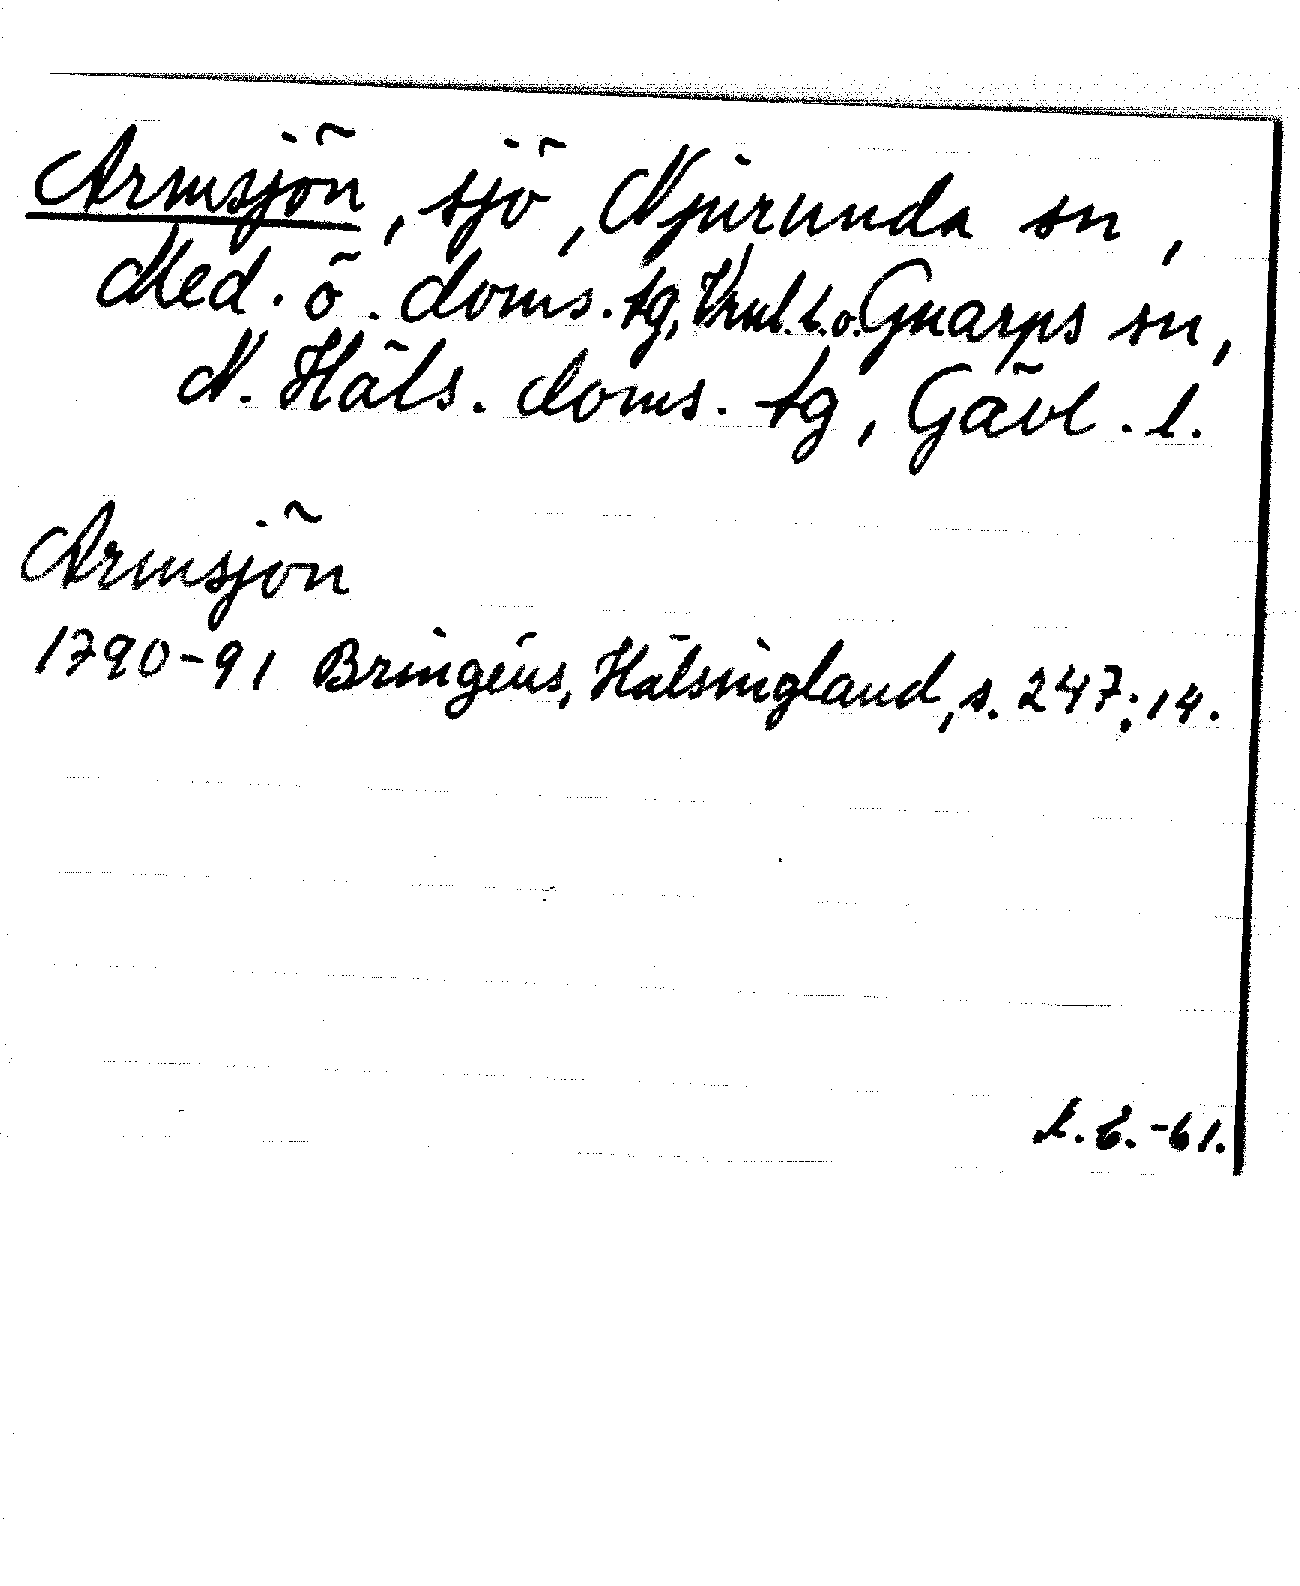 Armsjön, sjö, Njurunda sn,
Med. ö. doms. tg, Vnl. l. o. Gnarps sn,
N. Häls. doms. tg, Gävl. l.
Armsjön
1790-91 Bringéus, Hälsingland, s. 247:14.
L.E.-61.